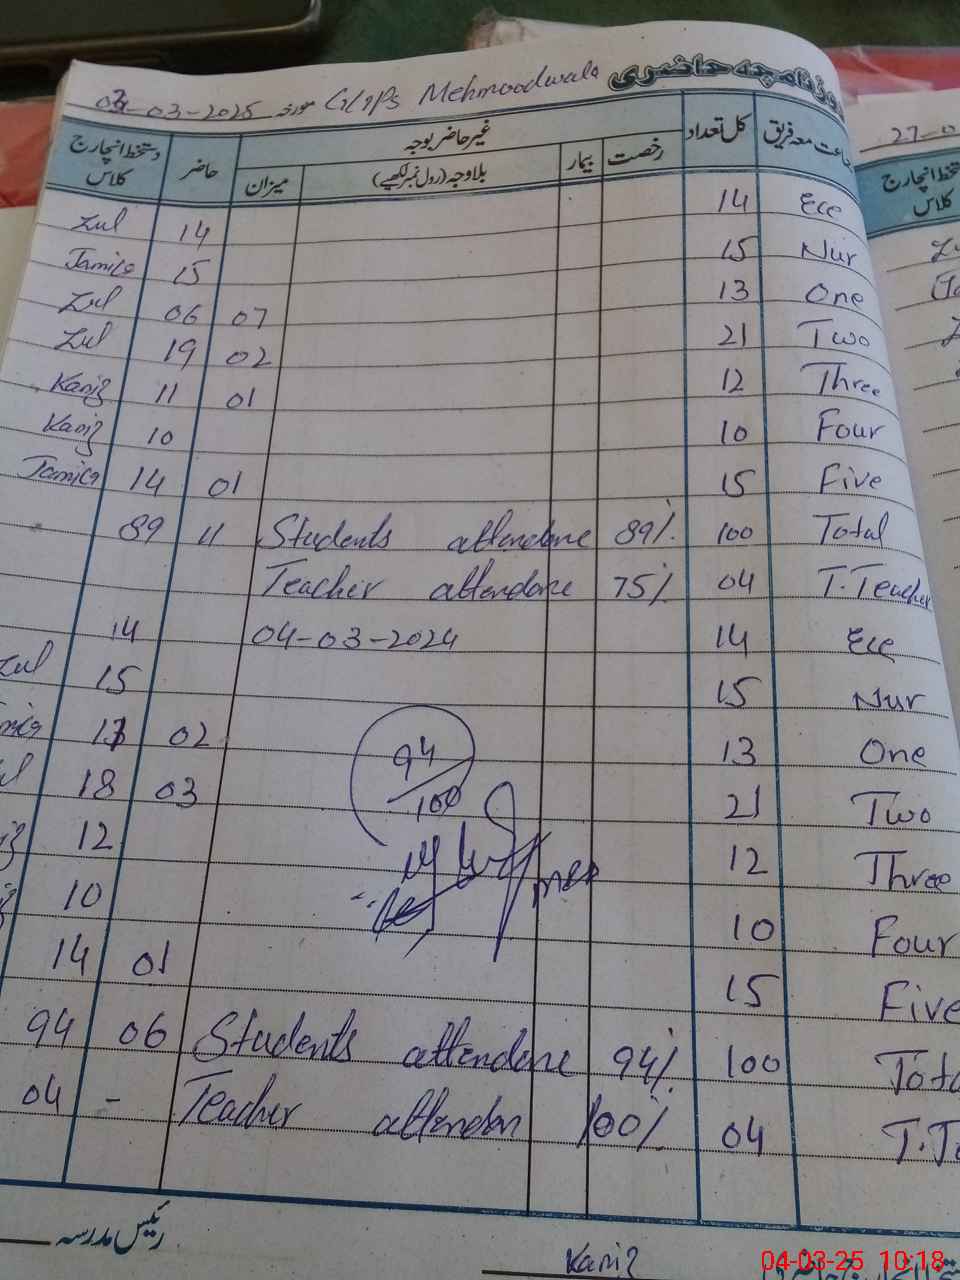 روزنامچہ حاضری
G/G/P/S Mehmoodwala مورخہ 03-03-2025
جماعت معہ فریق کل تعداد غیر حاضر بوجہ حاضر دستخط انچارج کلاس
رخصت بیمار بلاوجہ (رول نمبر لکھیے) میزان
Ece 14 14 Zul
Nur 15 15 Jamila
One 13 07 06 Zul
Two 21 02 19 Zul
Three 12 01 11 Kaniz
Four 10 10 Kaniz
Five 15 01 14 Jamila
Total 100 89% Students attendane 11 89
T.Teacher 04 75% Teacher attendane
Ece 14 04-03-2024 14
Nur 15 15 Zul
One 13 02
Two 21 03 18
Three 12 12
Four 10 10
Five 15 01 14
94/100
Total 100 94% Students attendane 06 94
04 100% Teacher attendan - 04
رئیس مدرسہ
Kaniz
27-0
دستخط انچارج
کلاس
04-03-25 10:18